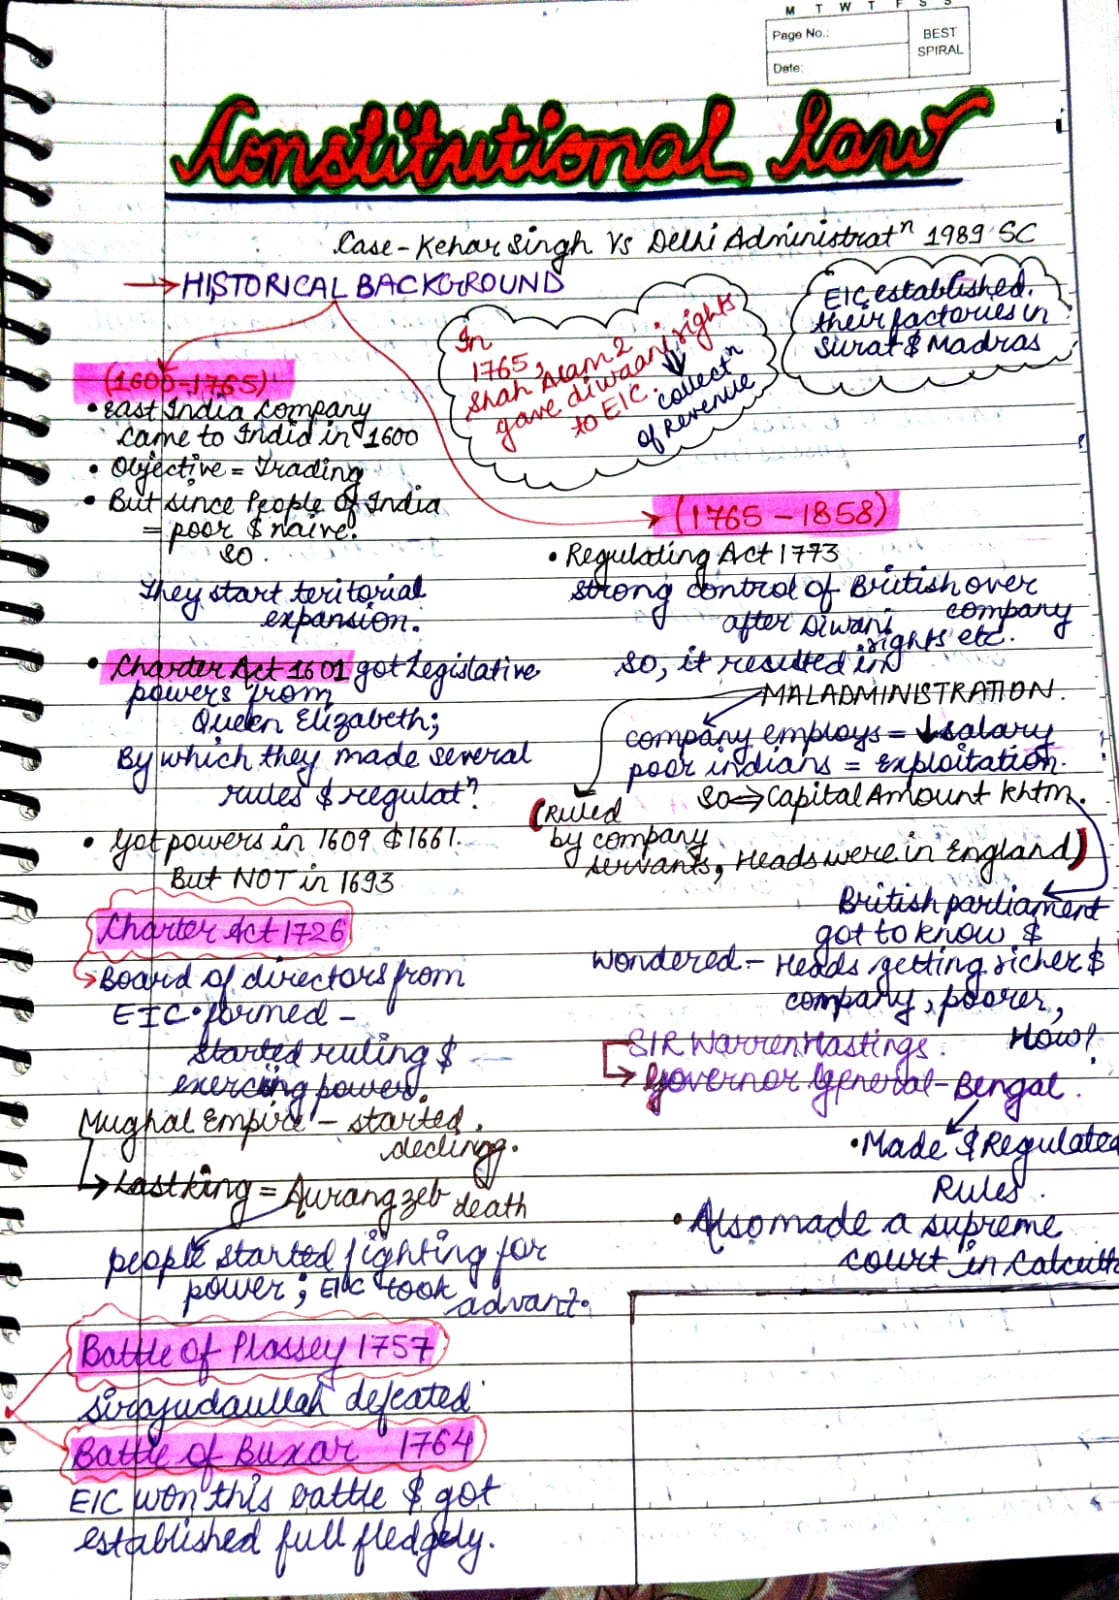 M T W T F S S
Page No.:
Date:
BEST
SPIRAL
Constitutional Law
Case - Kehar Singh Vs Delhi Administratⁿ 1989 SC
→ HISTORICAL BACKGROUND
In
1765,
Shah Alam 2
gave diwaani rights
to EIC.
↓
collectⁿ
of revenue
EIC established
their factories in
Surat $ Madras
(1600-1765)
• East India Company
came to India in 1600
• Objective = Trading
• But since People of India
= poor $ naive.
SO.
They start teritorial
expansion.
• Charter Act 1601 got Legislative
powers from
Queen Elizabeth;
By which they made several
rules $ regulatⁿ.
• Got powers in 1609 $ 1661.
But NOT in 1693
Charter Act 1726
→ Board of directors from
EIC formed -
started ruling $
exercing power.
Mughal Empire - started
declingg.
→ Last king = Aurangzeb death
people started fighting for
power; EIC took advant.
Battle of Plassey 1757
Sirajudaullah defeated
Battle of Buxar 1764
EIC won this battle $ got
established full fledgely.
→ (1765 - 1858)
• Regulating Act 1773
strong control of British over
company
after Diwani
rights etc.
so, it resulted in
MALADMINISTRATION.
company employs = ↓ salary
poor indians = exploitation.
so ⇒ Capital Amount khtm.
(Ruled
by company
servants, Heads were in England)
British parliament
got to know $
wondered - Heads getting richer $
company, poorer,
How?
SIR Warren Hastings.
→ Governor General - Bengal.
• Made $ Regulated
Rules.
• Also made a supreme
court in Calcutta